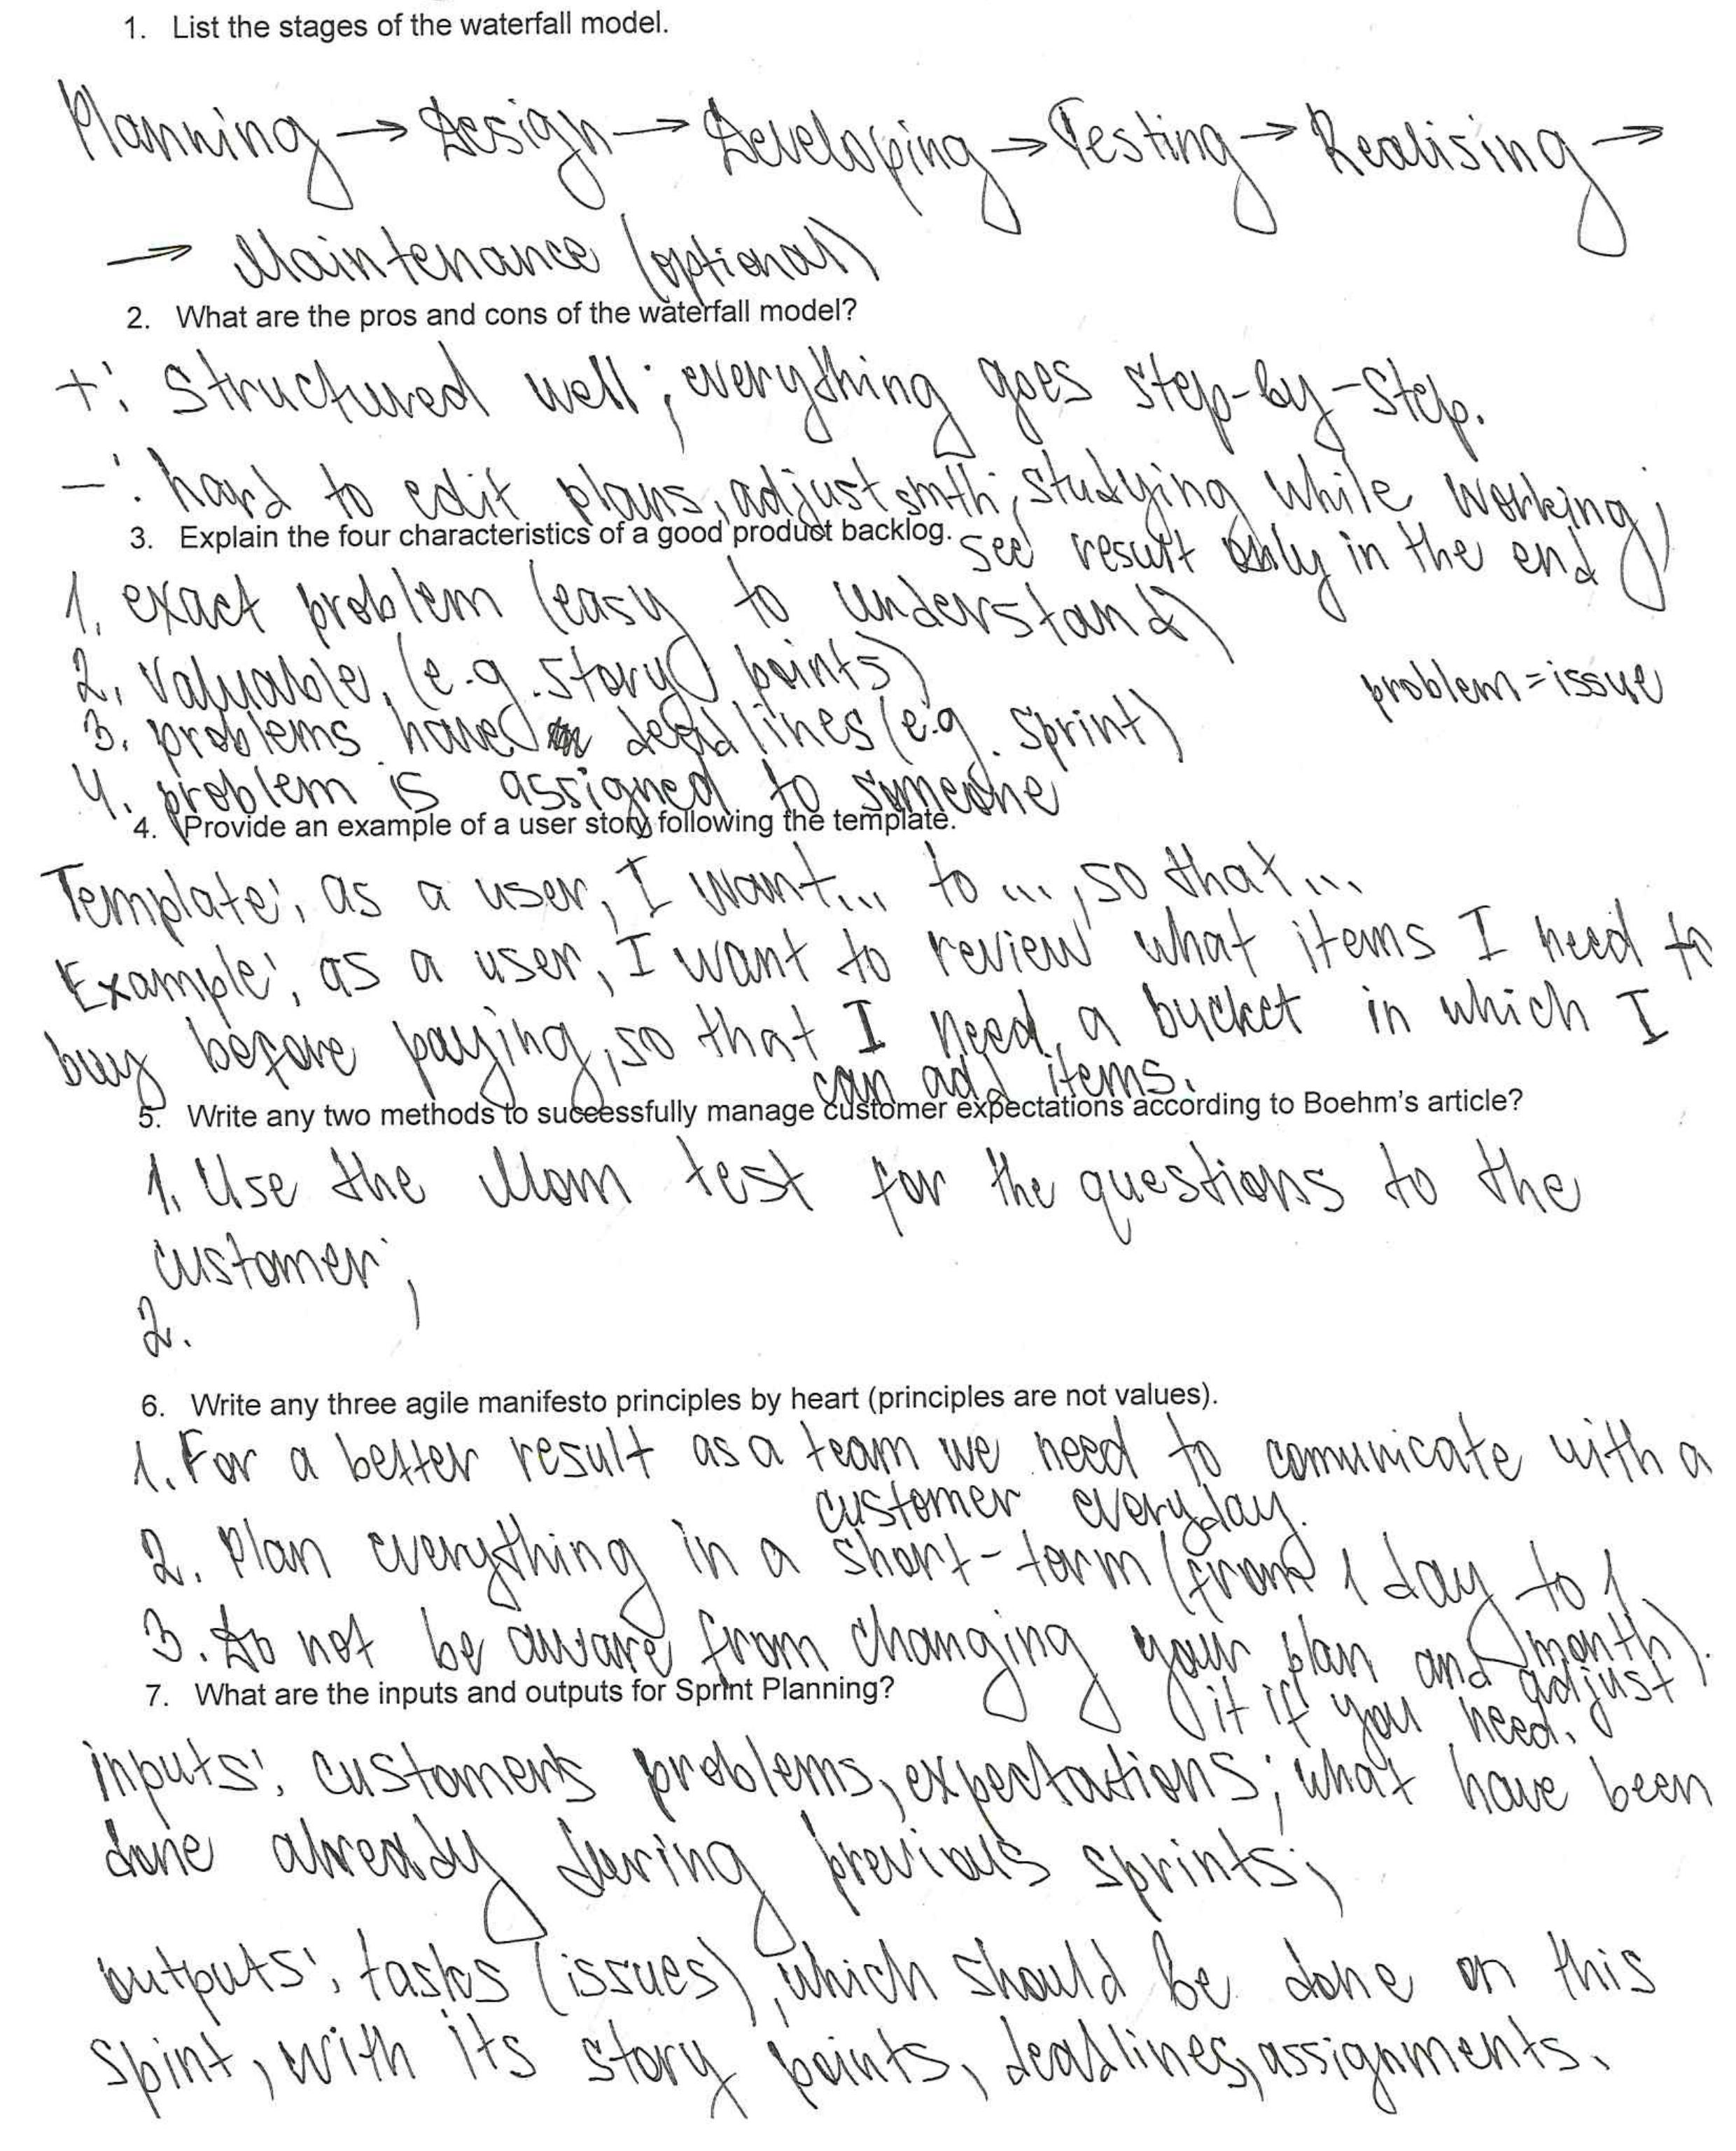 1. List the stages of the waterfall model.
Planning → Design → Developing → Testing → Realising →
→ Maintenance (optional)
2. What are the pros and cons of the waterfall model?
+: structured well; everything goes step-by-step.
-: hard to edit plans, adjust smth; studying while working;
see result only in the end
3. Explain the four characteristics of a good product backlog.
1. exact problem (easy to understand)
2. valuable, (e.g. story points)
problem = issue
3. problems have deadlines (e.g. sprint)
4. problem is assigned to someone
4. Provide an example of a user story following the template.
Template: as a user, I want... to ..., so that...
Example: as a user, I want to review what items I need to
buy before paying, so that I need a bucket in which I
can add items.
5. Write any two methods to successfully manage customer expectations according to Boehm's article?
1. Use the Mom test for the questions to the
customer;
2.
6. Write any three agile manifesto principles by heart (principles are not values).
1. For a better result as a team we need to comunicate with a
customer everyday.
2. Plan everything in a short-term (from 1 day to 1
month).
3. Do not be aware from changing your plan and adjust
it if you need.
7. What are the inputs and outputs for Sprint Planning?
inputs: customer's problems, expectations; what have been
done already during previous sprints;
outputs: tasks (issues), which should be done on this
spint, with its story points, deadlines, assignments.